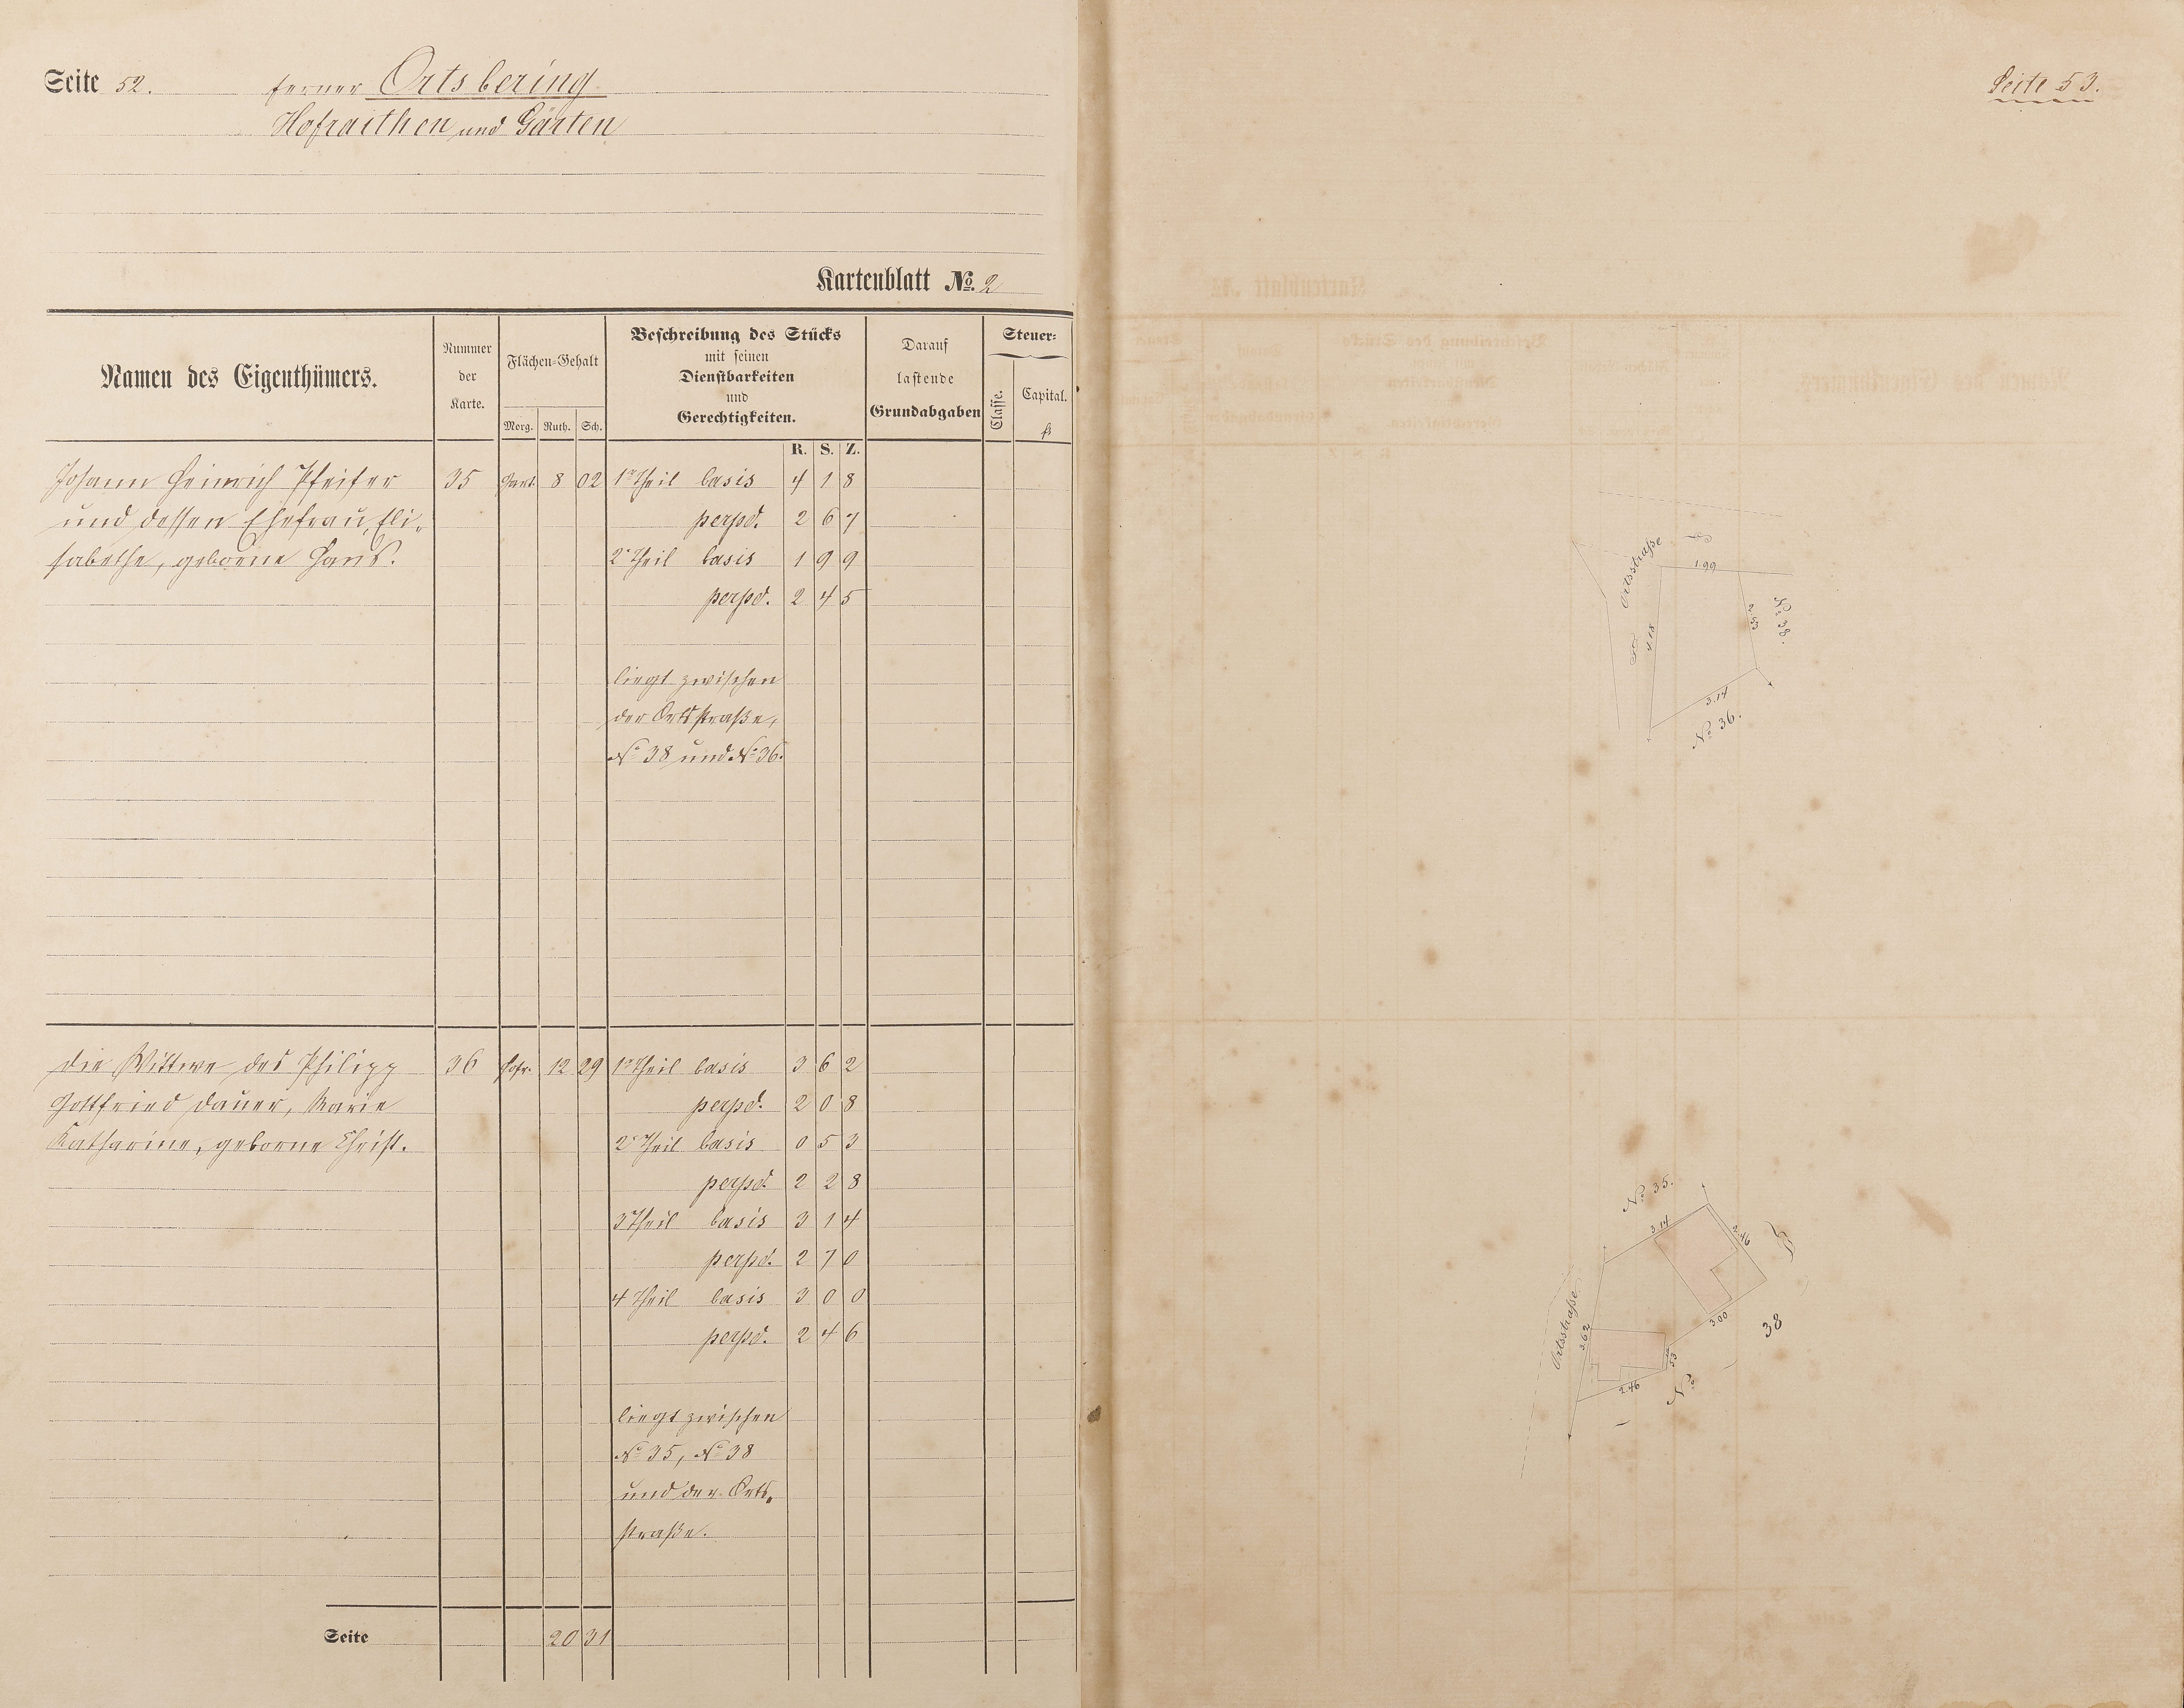 Seite 52. ferner Ortsbering
Hofraithen und Gärten
Kartenblatt No. 2
Namen des Eigenthümers.
Nummer
der
Karte.
Flächen-Gehalt
Morg. Ruth. Sch.
Beschreibung des Stücks
mit seinen
Dienstbarkeiten
und
Gerechtigkeiten.
Darauf
lastende
Grundabgaben
Steuer-
Classe.
Capital.
fl
R. S. Z.
Johann Heinrich Pfeifer 35 Gart. 8 02 1r Theil basis 4 1 8
und dessen Ehefrau, Eli- perpd. 2 6 7
sabethe, geborne Hans. 2r Theil basis 1 9 9
perpd. 2 4 5
liegt zwischen
der Ortsstraße,
No 38 und No 36.
Die Wittwe des Philipp 36 Hofr. 12 29 1r Theil basis 3 6 2
Gottfried Dauer, Marie perpd. 2 0 8
Katharine, geborne Christ. 2r Theil basis 0 5 3
perpd. 2 2 8
3 Theil basis 3 1 4
perpd. 2 7 0
4 Theil basis 3 0 0
perpd. 2 4 6
liegt zwischen
No 35, No 38
und der Orts-
straße.
Seite 20 31
Seite 53.
Ortsstraße
1.99
4.18
No 38.
3.14
No 36.
No 35.
3.14
2.46
Ortsstraße
3.62
3.00
38
53
2.46
No